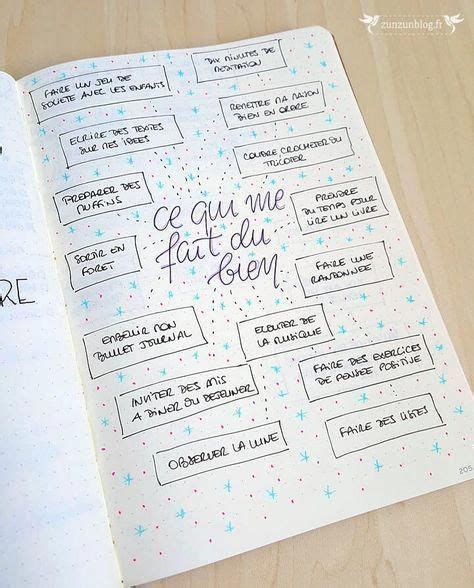 zunzunblog.fr
DIX MINUTES DE
MÉDITATION
FAIRE UN JEU DE
SOCIÉTÉ AVEC LES ENFANTS
REMETTRE MA MAISON
BIEN EN ORDRE
ECRIRE DES TEXTES
SUR MES IDÉES
COUDRE, CROCHETER OU
TRICOTER
PRÉPARER DES
MUFFINS
ce qui me
fait du
bien
PRENDRE
DU TEMPS POUR
LIRE UN LIVRE
SORTIR EN
FORÊT
FAIRE UNE
RANDONNÉE
RE
EMBELIR MON
BULLET JOURNAL
ECOUTER DE
LA MUSIQUE
FAIRE DES EXERCICES
DE PENSÉE POSITIVE
INVITER DES AMIS
A DINER OU DEJEUNER
FAIRE DES LISTES
OBSERVER LA LUNE
205